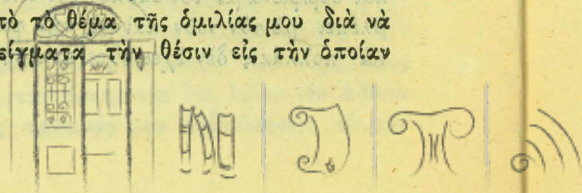 πὸ τὸ θέμα τῆς ὁμιλίας μου διὰ νὰ
είγματα τὴν θέσιν εἰς τὴν ὁποίαν